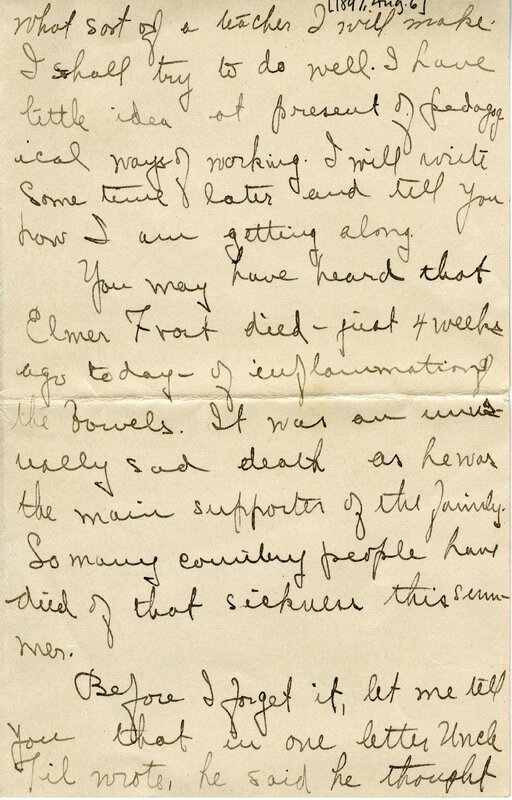 [1897, Aug. 6]
what sort of a teacher I will make.
I shall try to do well. I have
little idea at present of pedagog
ical ways of working. I will write
some time later and tell you
how I am getting along
You may have heard that
Elmer Frost died - just 4 weeks
ago today - of inflammation of
the bowels. It was an unus-
ually sad death as he was
the main supporter of the family.
So many country people have
died of that sickness this sum-
mer.
Before I forget it, let me tell
you that in one letter Uncle
Til wrote, he said he thought